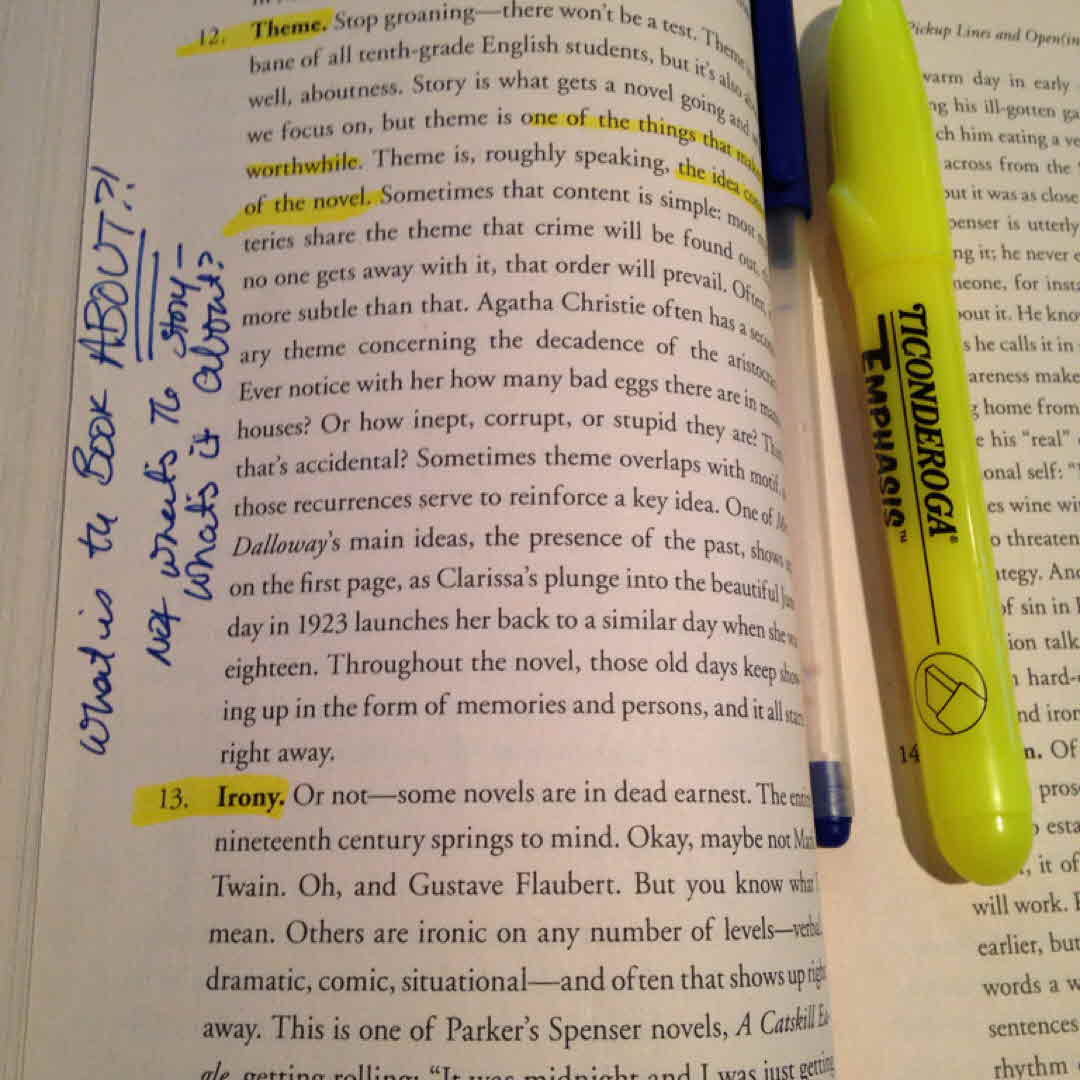 12. Theme. Stop groaning—there won't be a test. Theme is
bane of all tenth-grade English students, but it's also
well, aboutness. Story is what gets a novel going and
we focus on, but theme is one of the things that
worthwhile. Theme is, roughly speaking, the idea
of the novel. Sometimes that content is simple: most
teries share the theme that crime will be found out,
no one gets away with it, that order will prevail. Often,
more subtle than that. Agatha Christie often has a
ary theme concerning the decadence of the
Ever notice with her how many bad eggs there are in
houses? Or how inept, corrupt, or stupid they are?
that's accidental? Sometimes theme overlaps with motif,
those recurrences serve to reinforce a key idea. One of
Dalloway's main ideas, the presence of the past, shows
on the first page, as Clarissa's plunge into the beautiful
day in 1923 launches her back to a similar day when she
eighteen. Throughout the novel, those old days keep
ing up in the form of memories and persons, and it all
right away.
13. Irony. Or not—some novels are in dead earnest. The
nineteenth century springs to mind. Okay, maybe not
Twain. Oh, and Gustave Flaubert. But you know what
mean. Others are ironic on any number of levels—verbal,
dramatic, comic, situational—and often that shows up right
away. This is one of Parker's Spenser novels, A Catskill
gle, getting rolling: "It was midnight and I was just getting
What is the Book ABOUT?!
Not what's the story –
what's it about?
TICONDEROGA®
EMPHASIS™
Pickup Lines and Open
warm day in early
his ill-gotten
him eating a
across from the
but it was as close
is utterly
it; he never
for
about it. He
he calls it in
make
home from
his "real"
self: "
wine
threaten
And
of sin in
talk
hard-
14
Of
it of
will work.
earlier, but
words a
sentences
rhythm